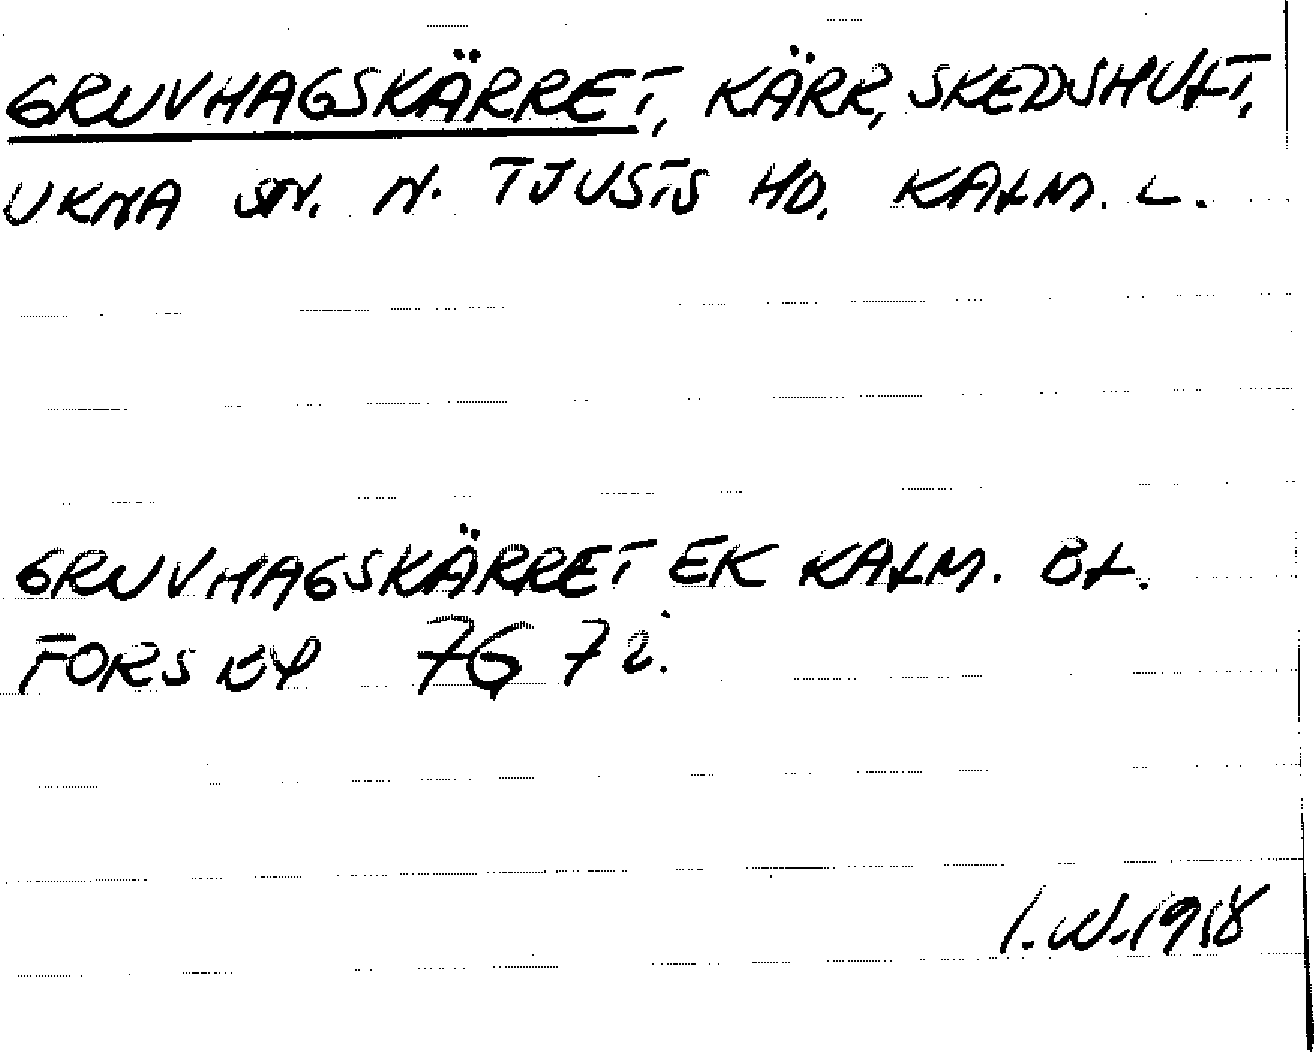 GRUVHAGSKÄRRET, KÄRR, SKEDSHULT,
UKNA SN. N. TJUSTS HD. KALM. L.
GRUVHAGSKÄRRET EK KALM. BL.
FORSBY 7G 7i.
I.W.1958